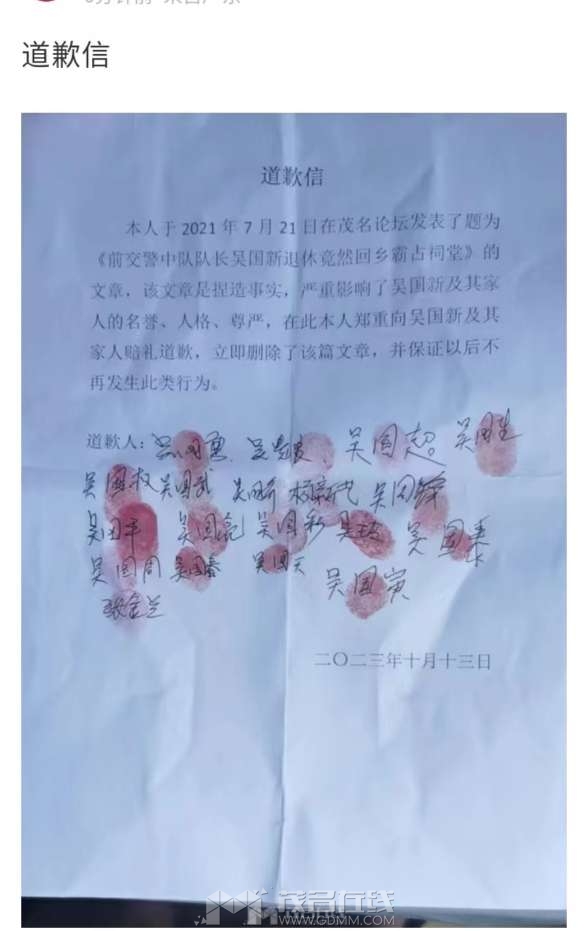 道歉信
道歉信
本人于 2021 年 7 月 21 日在茂名论坛发表了题为
《前交警中队队长吴国新退休竟然回乡霸占祠堂》的
文章，该文章是捏造事实，严重影响了吴国新及其家
人的名誉、人格、尊严，在此本人郑重向吴国新及其
家人赔礼道歉，立即删除了该篇文章，并保证以后不
再发生此类行为。
道歉人：吴国 吴 吴国超 吴国生
吴国权 吴国武 吴国
吴国平 吴国 吴国彩 吴 吴国泰
吴国周 吴国春 吴国天 吴国寅
张金兰
二〇二三年十月十三日
茂名在线
WWW.GDMM.COM